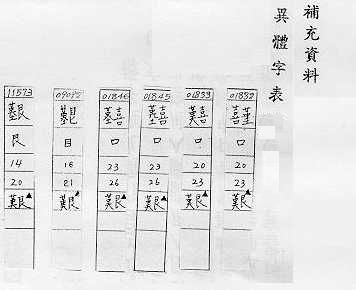 補充資料
異體字表
11573 09095 01846 01845 01833 01832
艮 目 口 口 口 口
14 16 23 23 20 20
20 21 26 26 23 23
艱 艱 艱 艱 艱 艱